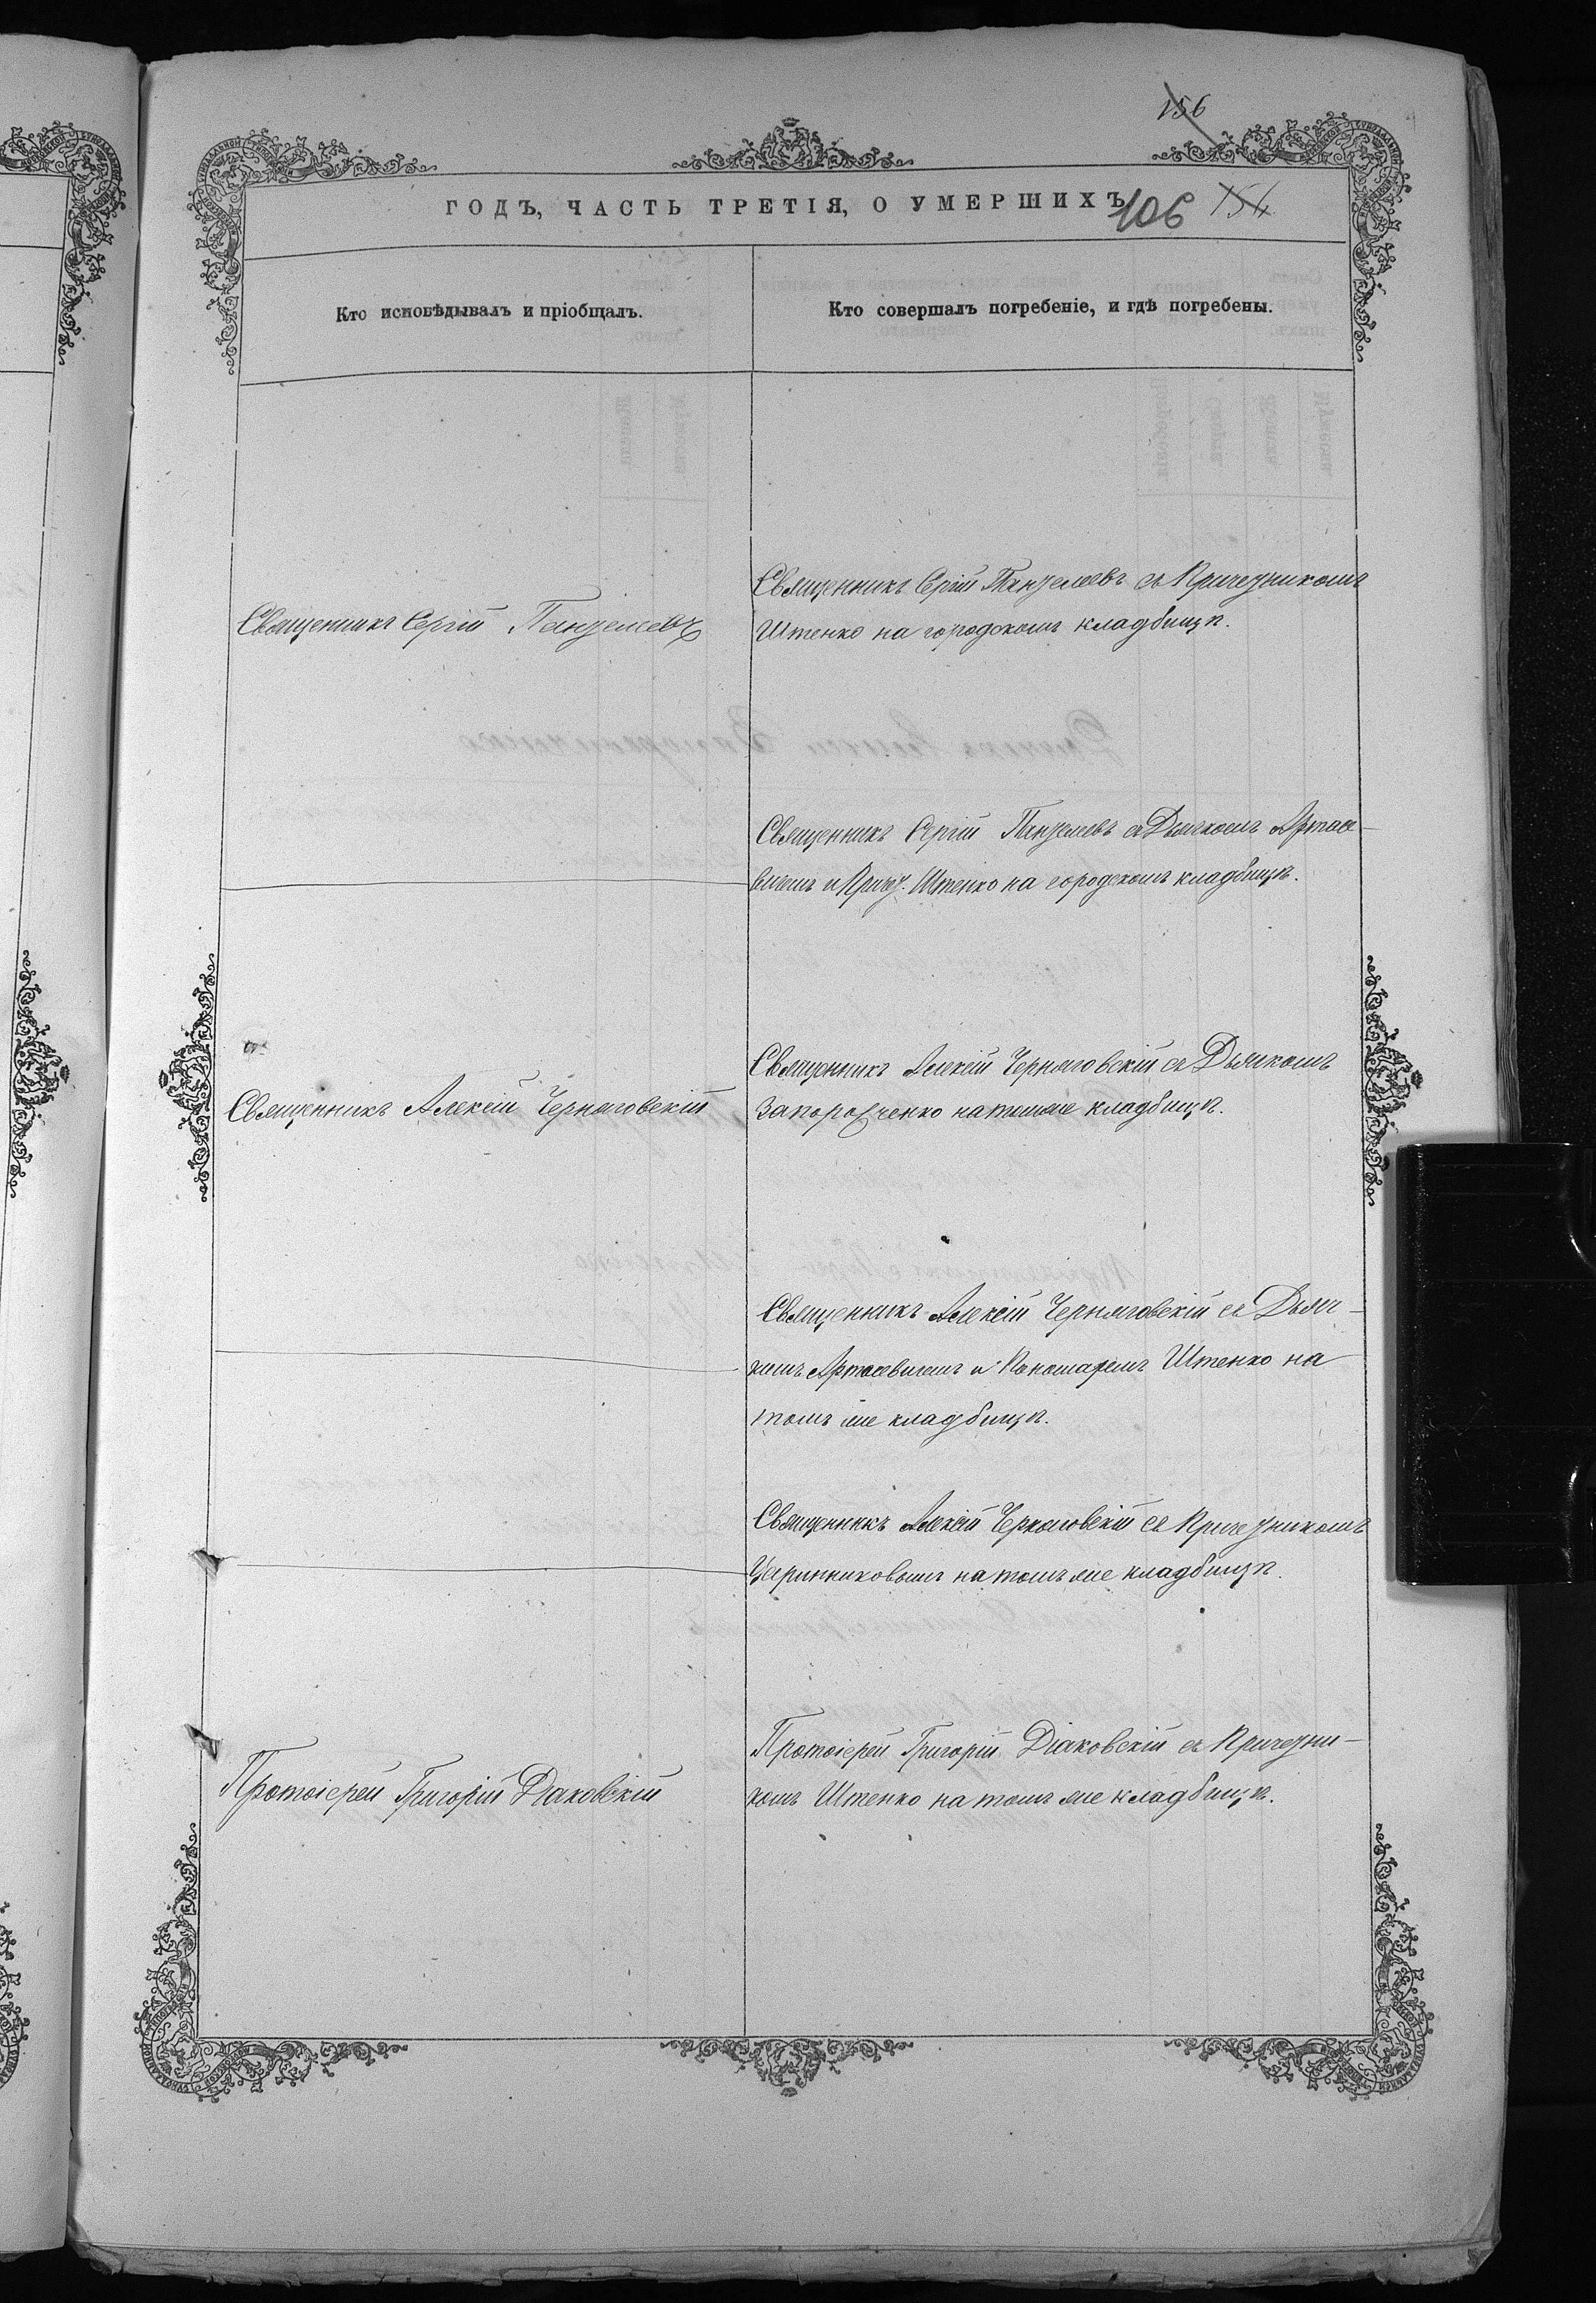 156
ГОДЪ, ЧАСТЬ ТРЕТІЯ, О УМЕРШИХЪ
106 154
Кто исповѣдывалъ и пріобщалъ.
Кто совершалъ погребеніе, и гдѣ погребены.
Священникъ Сергій
Священникъ Сергій съ Причетникомъ
Штенко на городскомъ кладбищѣ.
Священникъ Сергій съ Дьячкомъ
и Причет. Штенко на городскомъ кладбищѣ.
Священникъ Алексій Черняговскій
Священникъ Алексій Черняговскій съ Дьячкомъ
Запорожченко на томъ же кладбищѣ.
Священникъ Алексій Черняговскій съ Дьяч-
комъ и Пономаремъ Штенко на
томъ же кладбищѣ.
Священникъ Алексій Черняговскій съ Причетникомъ
на томъ же кладбищѣ.
Протоіерей Григорій Діаковскій
Протоіерей Григорій Діаковскій съ Причетни-
комъ Штенко на томъ же кладбищѣ.